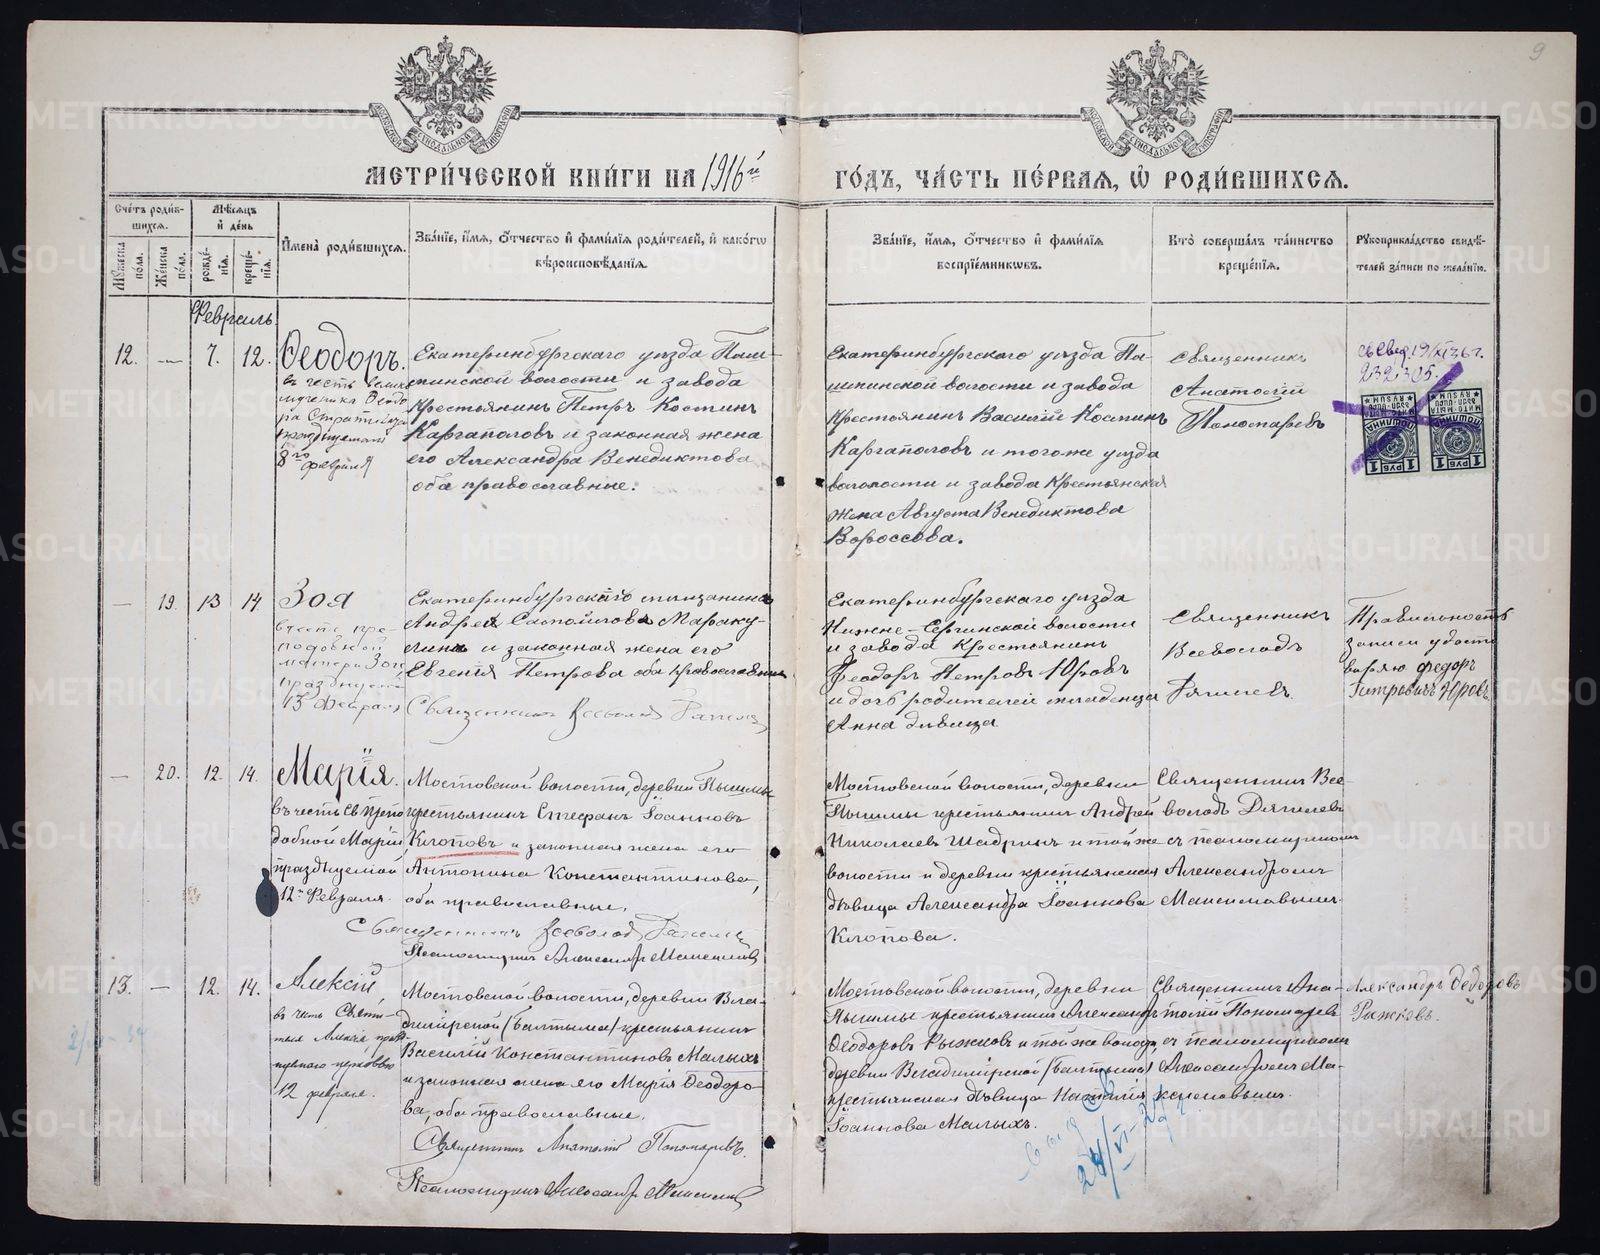 9
МЕТРИ́ЧЕСКОЙ КНИ́ГИ НА 1916й
ГО́ДЪ, ЧА́СТЬ ПЕ́РВАЯ, Ѡ҆ РОДИ́ВШИХСЯ.
Сче́тъ роди́в-
шихся.
Мѣ́сяцъ
и҆ де́нь
Мꙋ́жеска
по́ла.
Же́нска
по́ла.
рожде́-
нїя.
креще́-
нїя.
И҆мена̀ роди́вшихся.
Зва́нїе, и҆́мя, ѻ҆́тчество и҆ фами́лїя роди́телей, и҆ како́гѡ
вѣроисповѣ́данїя.
Зва́нїе, и҆́мя, ѻ҆́тчество и҆ фами́лїя
воспрїе́мникѡвъ.
Кто̀ соверша́лъ та́инство
креще́нїя.
Рꙋкоприкла́дство свидѣ́-
телей за́писи по жела́нїю.
Февраль
12. — 7. 12.
Ѳеодоръ.
въ честь велико
мученика Ѳеодо
ра Стратилата
празднуемаго
8го февраля
Екатеринбургскаго уѣзда Пыш-
минской волости и завода
крестьянинъ Петръ Костинъ
Каргаполовъ и законная жена
его Александра Венедиктова
оба православные.
Екатеринбургскаго уѣзда Пы-
шминской волости и завода
крестьянинъ Василій Костинъ
Каргаполовъ и тогоже уѣзда
волости и завода крестьянская
жена Августа Венедиктова
Священникъ
Анатолій
Пономаревъ
232305.
ПОШЛИНА
1 РУБ 1
ПОШЛИНА
1 РУБ 1
— 19. 13 14
Зоя
въ честь пре-
подобной
матери Зои,
празднуемой
13 Февраля
Екатеринбургскаго мѣщанина
Андрея Мараку-
лина и законная жена его
Евгенія Петрова оба православные
Священникъ Всеволодъ
Екатеринбургскаго уѣзда
Нижне-Сергинской волости
и завода крестьянинъ
Ѳеодоръ Петровъ Юровъ
и дочь родителей младенца
Анна дѣвица
Священникъ
Всеволодъ
Правильность
записи удосто
вѣряю Федоръ
Петровичъ Юровъ
— 20. 12. 14.
Марія.
въ честь св. препо
добной Маріи
празднуемой
12го Февраля.
Мостовской волости, деревни Пышмы
крестьянинъ Стефанъ Іоанновъ
Клоповъ и законная жена его
Антонина Константинова,
оба православные.
Священникъ Всеволодъ
Псаломщикъ Александръ
Мостовской волости, деревни
Пышмы крестьянинъ Андрей
Николаевъ Шадринъ и той же
волости и деревни крестьянская
дѣвица Александра Іоаннова
Клопова.
Священникъ Все-
володъ
съ псаломщикомъ
Александромъ
13. — 12. 14.
Алексій
въ честь Святи-
теля Алексія, празд-
нуемаго церковью
12 февраля.
Мостовской волости, деревни Вла-
димірской (Балтыма) крестьянинъ
Василій Константиновъ Малыхъ
и законная жена его Марія Ѳеодоро-
ва, оба православные.
Священникъ Анатолій Пономаревъ.
Псаломщикъ Александръ
Мостовской волости, деревни
Пышмы крестьянинъ Александръ
Ѳеодоровъ Рыжковъ и той же волости,
деревни Владимірской (Балтыма)
крестьянская дѣвица Наталія
Іоаннова Малыхъ.
Священникъ Ана-
толій Пономаревъ
съ псаломщикомъ
Александромъ
Александръ Ѳедоровъ
Рыжковъ.
METRIKI.GASO-URAL.RU